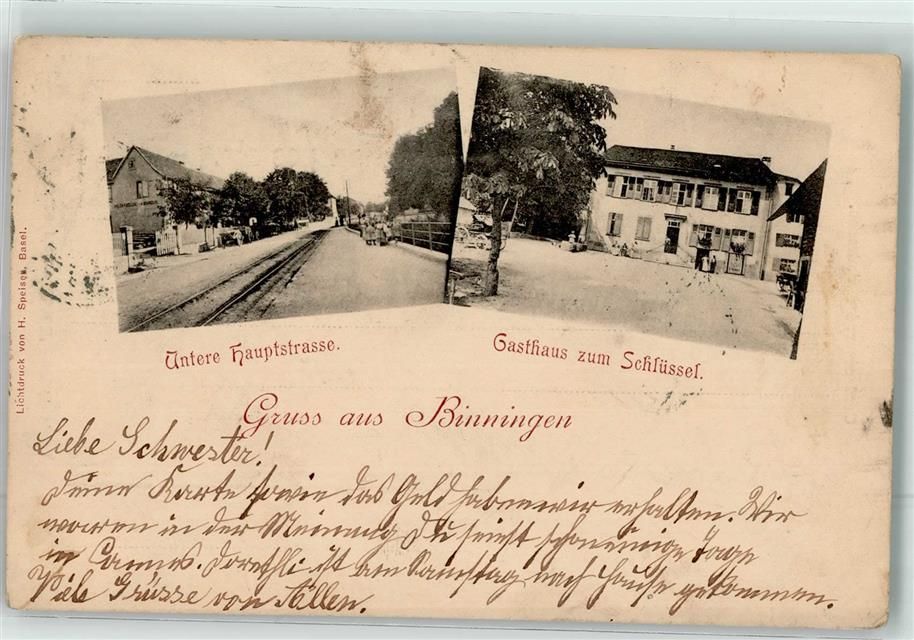 Untere Hauptstrasse.
Gasthaus zum Schlüssel.
Lichtdruck von H. Speiser, Basel.
Gruss aus Binningen
Liebe Schwester!
Deine Karte sowie das Geld haben wir erhalten. Wir
waren in der Meinung Du seist schon einige Tage
in Dorethli ist am Samstag nach Hause gekommen.
Viele Grüsse von Allen.